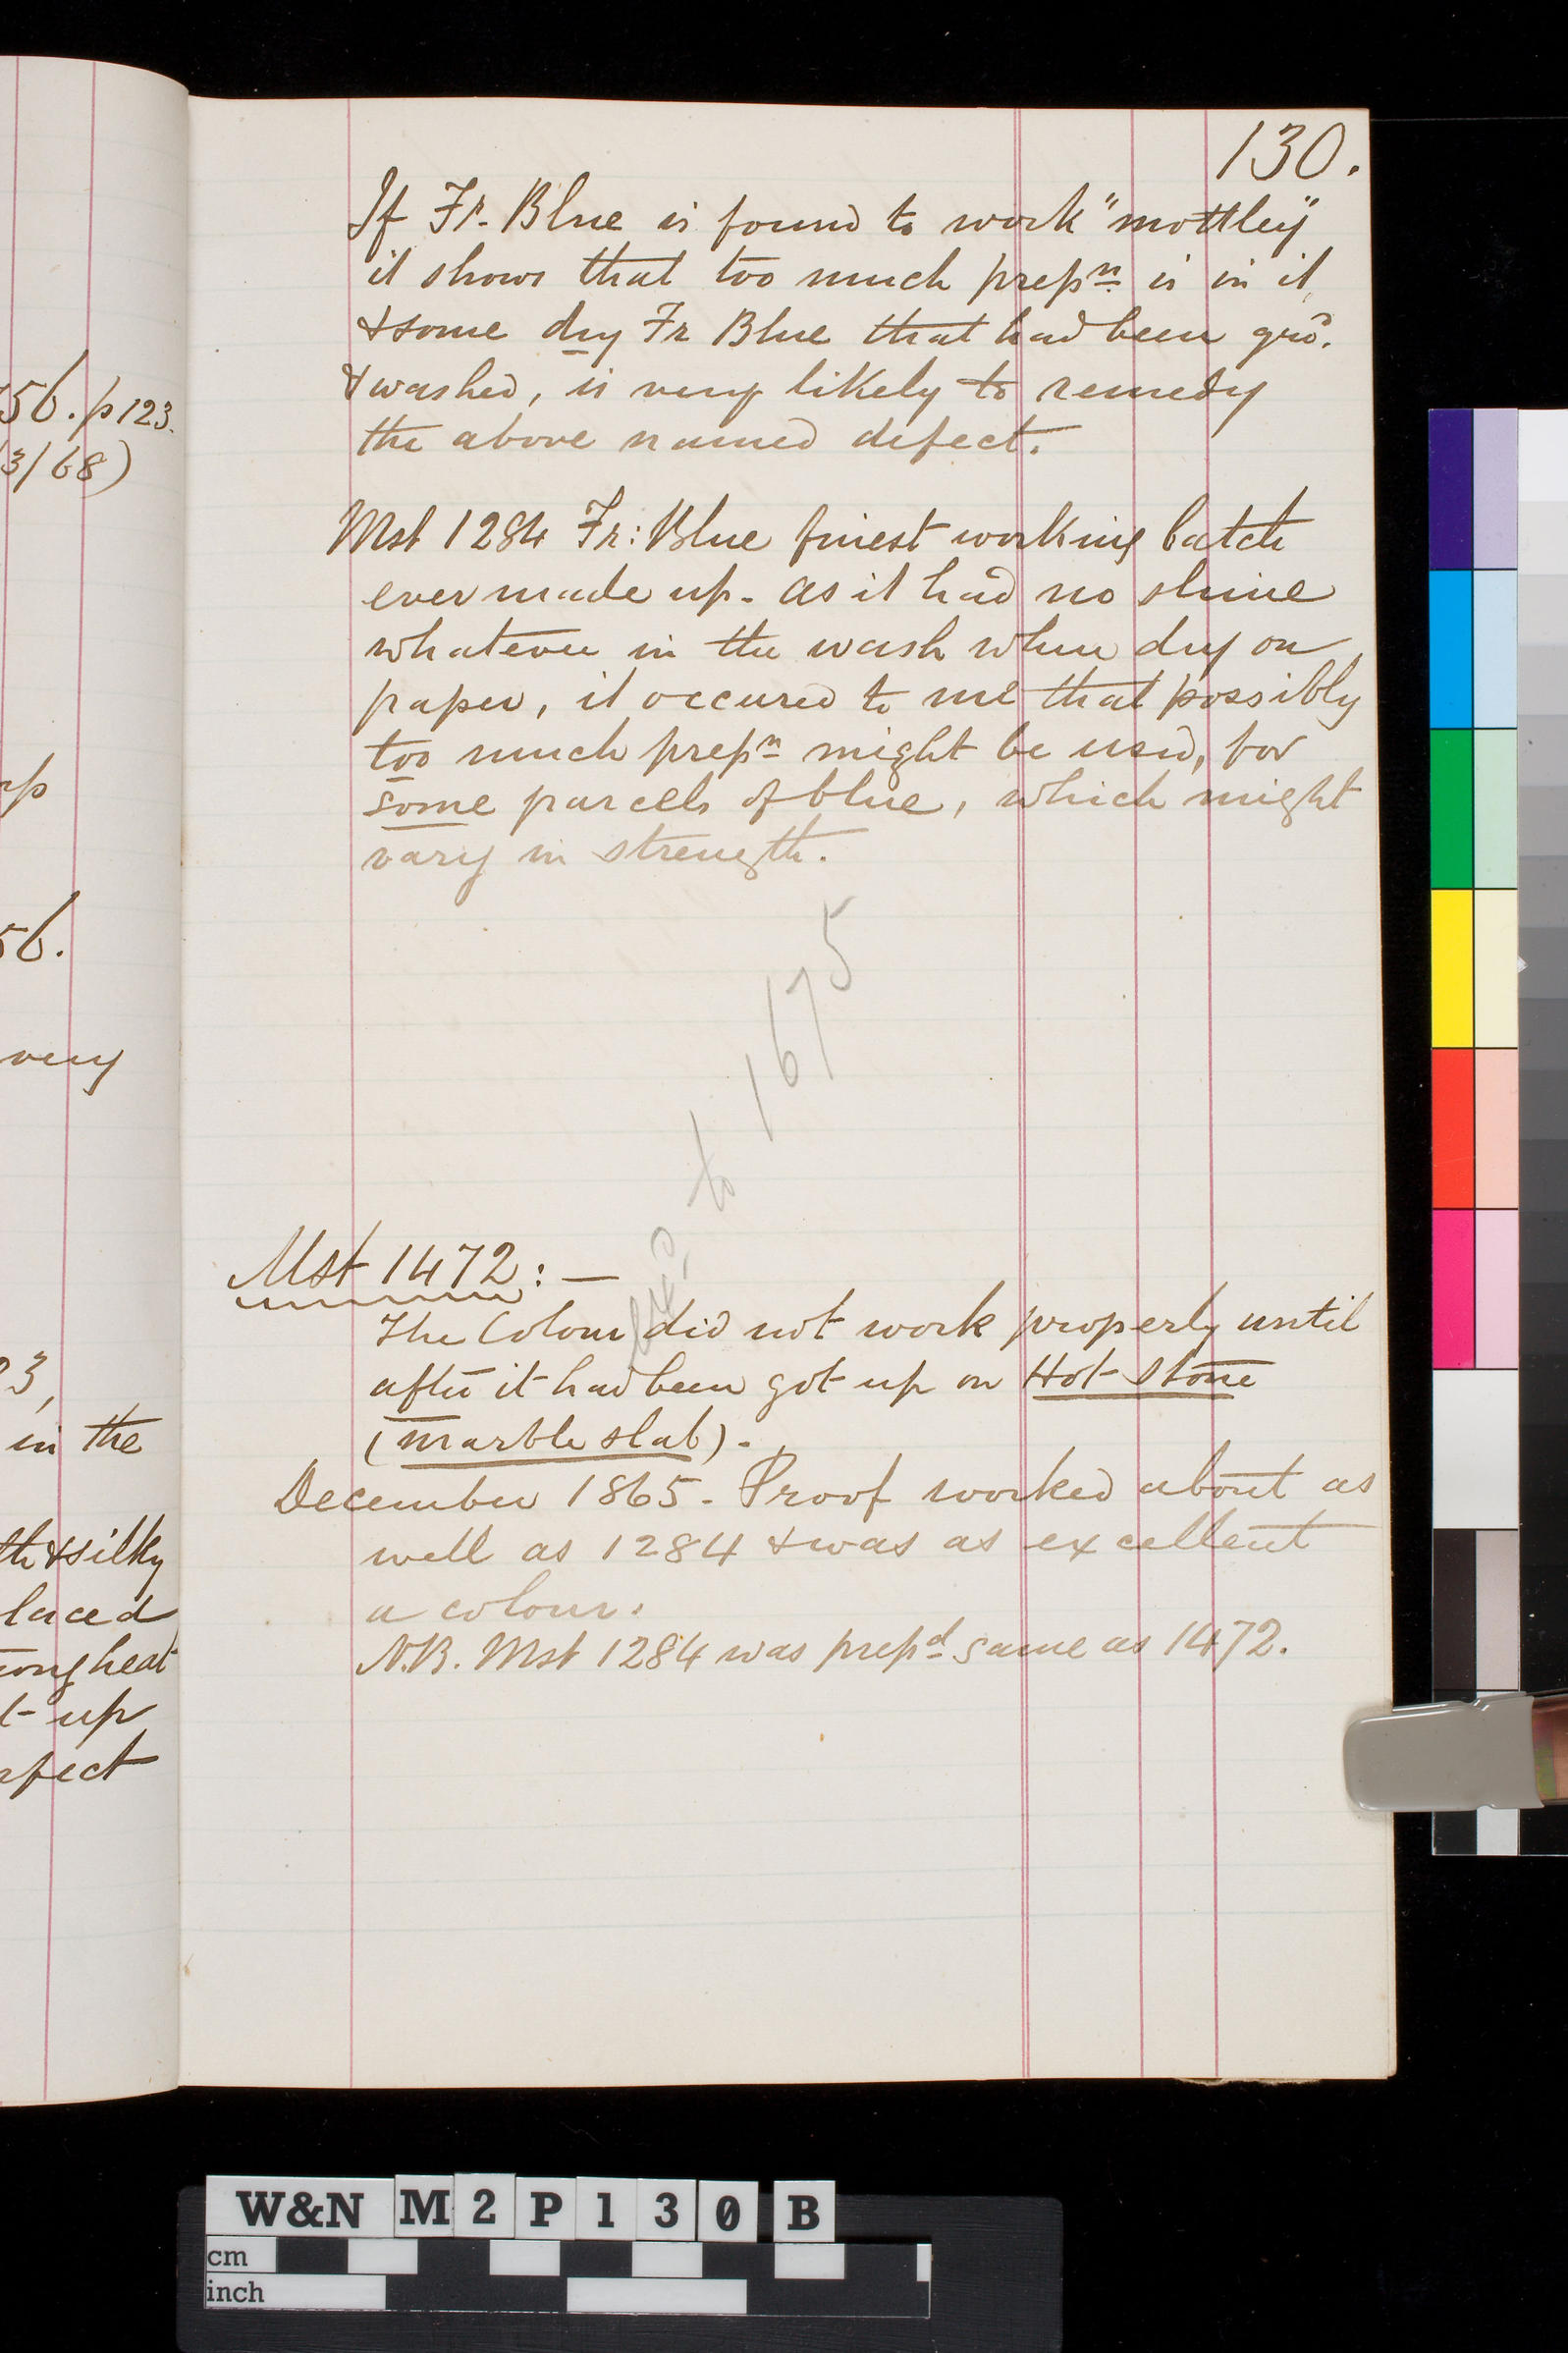 56. p 123.
3/68)
56.
very
3,
in the
silky
laced
heat
up
130.
If Fr. Blue is found to work "mottley"
it shows that too much prepn is in it,
& some dry Fr Blue that had been grd.
& washed, is very likely to remedy
the above named defect.
Mst 1284 Fr: Blue finest working batch
ever made up. As it had no shine
whatever in the wash when dry on
paper, it occured to me that possibly
too much prepn might be used, for
some parcels of blue, which might
vary in strength.
to 1675
Mst 1472: —
The Colour did not work properly until
after it had been got up on Hot Stone
(marble slab).
December 1865. Proof worked about as
well as 1284 & was as excellent
a colour.
N.B. Mst 1284 was prepd same as 1472.
W&N M2P130B
cm
inch